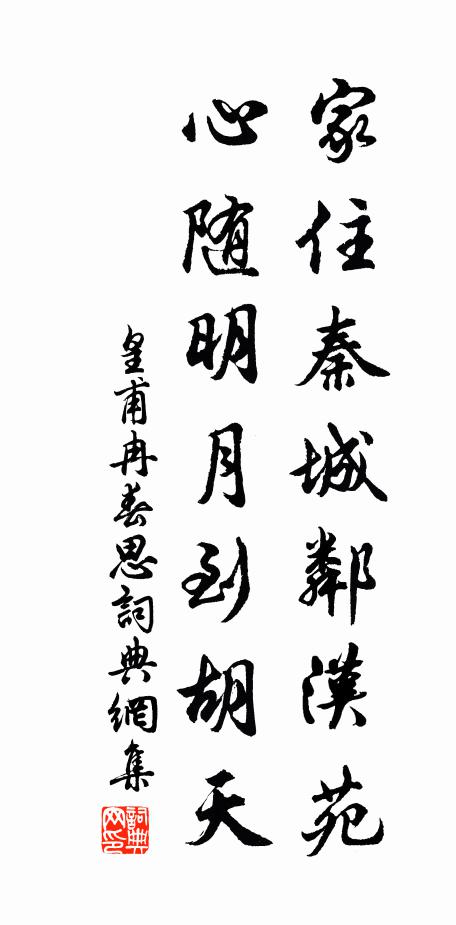 家住秦城鄰漢苑
心随明月到胡天
皇甫冉春思詞典網集
詞典網印